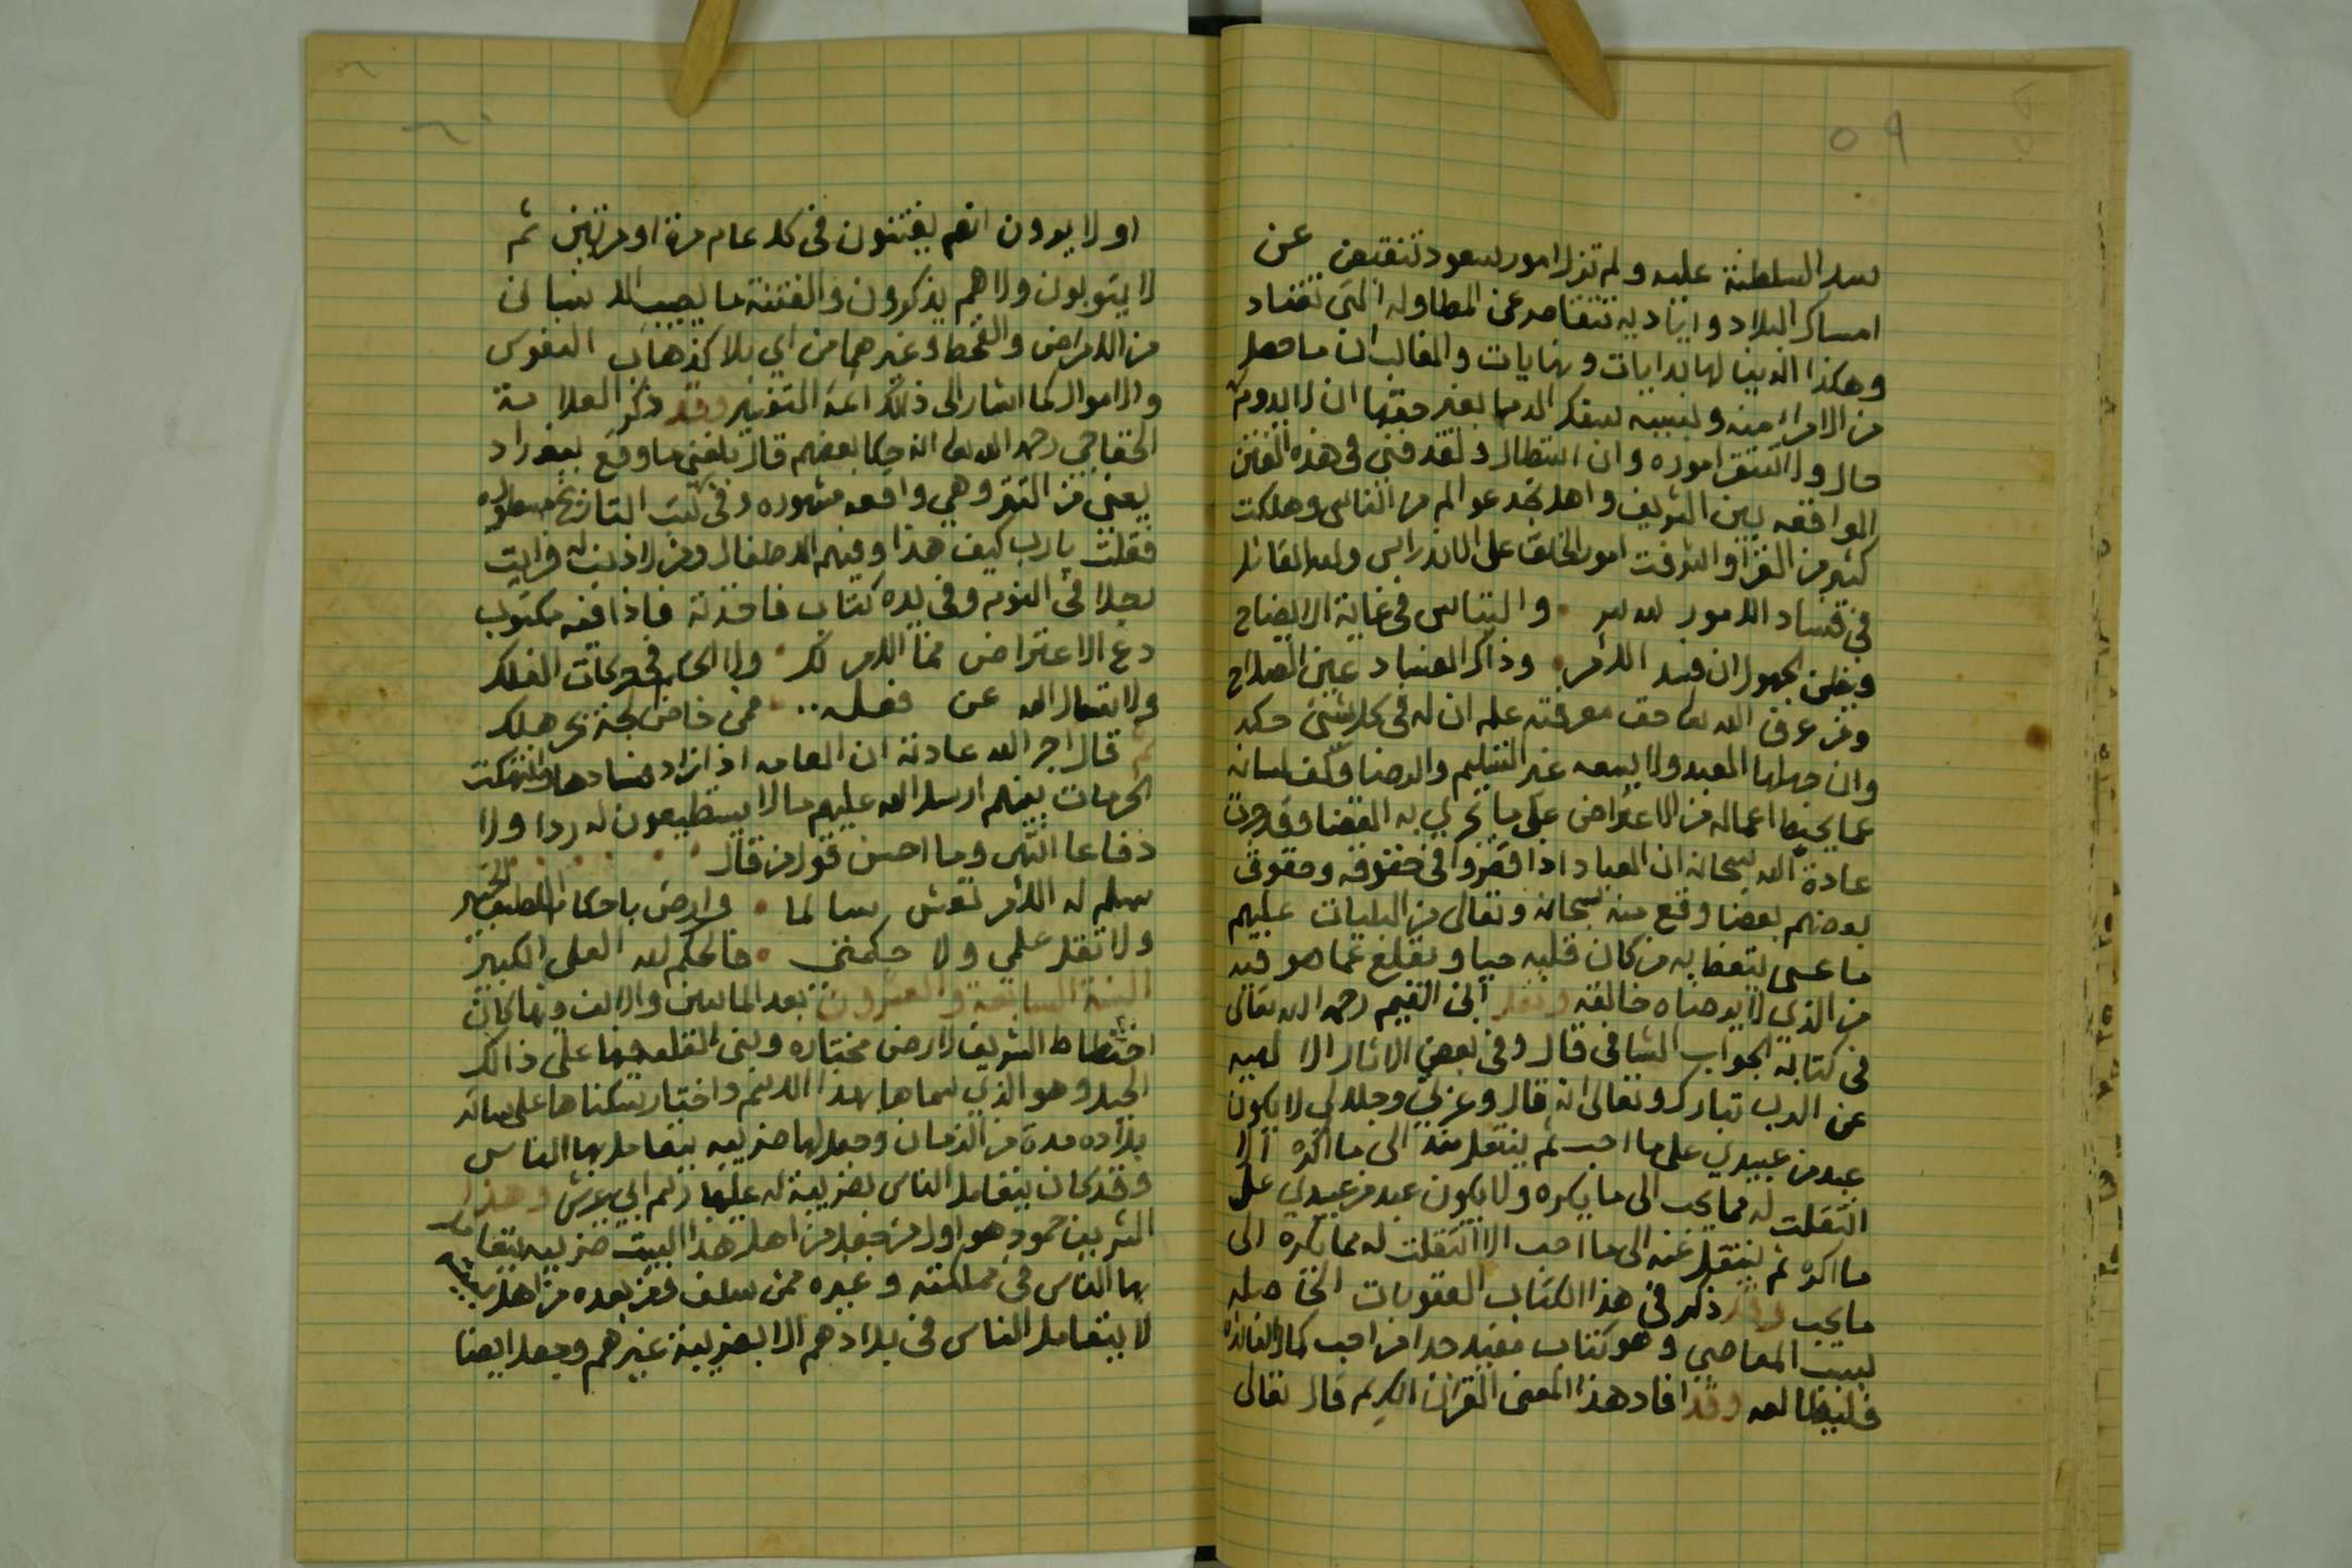 ٥٩
سد السلطنة عليه ولم تزل امور سعود تنقص عن
امساك البلاد واياديه تتقاصر عن المطاوله التي تقتاد
وهكذا الدنيا لها بدايات ونهايات والغالب ان ما حصل
من الامراء منه وبسببه سفك الدما بغير حقها ان لا يدوم
حال ولا اتسق اموره وان استطال ولقد فني في هذه الفتن
الواقعه بين الشريف واهل نجد عوالم من الناس وهلكت
كثير من القرا واشرفت امور الخلق على الاندراس ولله القائل
في فساد الامور لله سر • والتباس في غاية الايضاح
ويظن الجهول ان فسد الامر • وذاك الفساد عين الصلاح
ومن عرف الله تعا حق معرفته علم ان له في كل شيء حكمه
وان جهلها العبد ولا يسعه غير التسليم والرضا وكف لسانه
عما يحبط اعماله من الاعتراض على ما يجري به القضا وقد جرت
عادة الله سبحانه ان العباد اذا قصروا في حقوقه وحقوق
بعضهم بعضا وقع منه سبحانه وتعالى من البليات عليهم
ما عسى يتعظ به من كان قلبه حيا ويقلع عما هو فيه
من الذي لا يرضاه خالقه ونقل ابن القيم رحمه الله تعالى
في كتابه الجواب الشافي قال وفي بعض الاثار الالهيه
عن الرب تبارك وتعالى انه قال وعزتي وجلالي لا يكون
عبد من عبيدي على ما احب ثم ينتقل منه الى ما اكره الا
انتقلت له مما يحب الى ما يكره ولا يكون عبد من عبيدي على
ما اكره ثم ينتقل عنه الى ما احب الا انتقلت له مما يكره الى
ما يحب وقد ذكر في هذا الكتاب العقوبات الحاصله
بسبب المعاصي وهو كتاب مفيد جدا من احب كمال الفائده
فليطالعه وقد افاد هذا المعنى القران الكريم قال تعالى
٦٠
او لا يرون انهم يفتنون في كل عام مرة او مرتين ثم
لا يتوبون ولا هم يذكرون والفتنة ما يصيب الانسان
من الامراض والقحط وغيرهما من اي بلا كذهاب النفوس
والاموال كما اشار الى ذلك ائمة التفسير وقد ذكر العلامة
الخفاجي رحمه الله تعا انه حكا بعضهم قال بلغني ما وقع ببغداد
يعني من التتر وهي واقعه مشهوره وفي كتب التاريخ مسطوره
فقلت يارب كيف هذا وفيهم الاطفال ومن لا ذنب له فرايت
رجلا في النوم وفي يده كتاب فاخذته فاذا فيه مكتوب
دع الاعتراض فما الامر لك • ولا الحكم في حركات الفلك
ولا تسال الله عن فعله • فمن خاض لجة بحر هلك
ثم قال اجر الله عادته ان العامه اذا زاد فسادها وانتهكت
الحرمات بينهم ارسل الله عليهم ما لا يستطيعون له ردا ولا
دفاعا انتهى وما احسن قول من قال
سلم له الامر تعش سالما • وارض باحكام اللطيف الخبير
ولا تقل علمي ولا حكمتي • فالحكم لله العلي الكبير
السنة السابعة والعشرون بعد المائتين والالف وفيها كان
اختطاط الشريف لارض مختاره وبنى القلعه فيها على ذالك
الجبل وهو الذي سماها بهذا الاسم واختار سكناها على سائر
بلاده مدة من الزمان وجعل لها ضريبه يتعامل بها الناس
وقد كان يتعامل الناس بضريبة له عليها رسم ابي عريش وهذا
الشريف حمود هو اول من جعل من اهل هذا البيت ضريبه يتعامل
بها الناس في مملكته وغيره ممن سلف فمن بعده من اهل بيته
لا يتعامل الناس في بلادهم الا بضريبة غيرهم وجعل ايضا